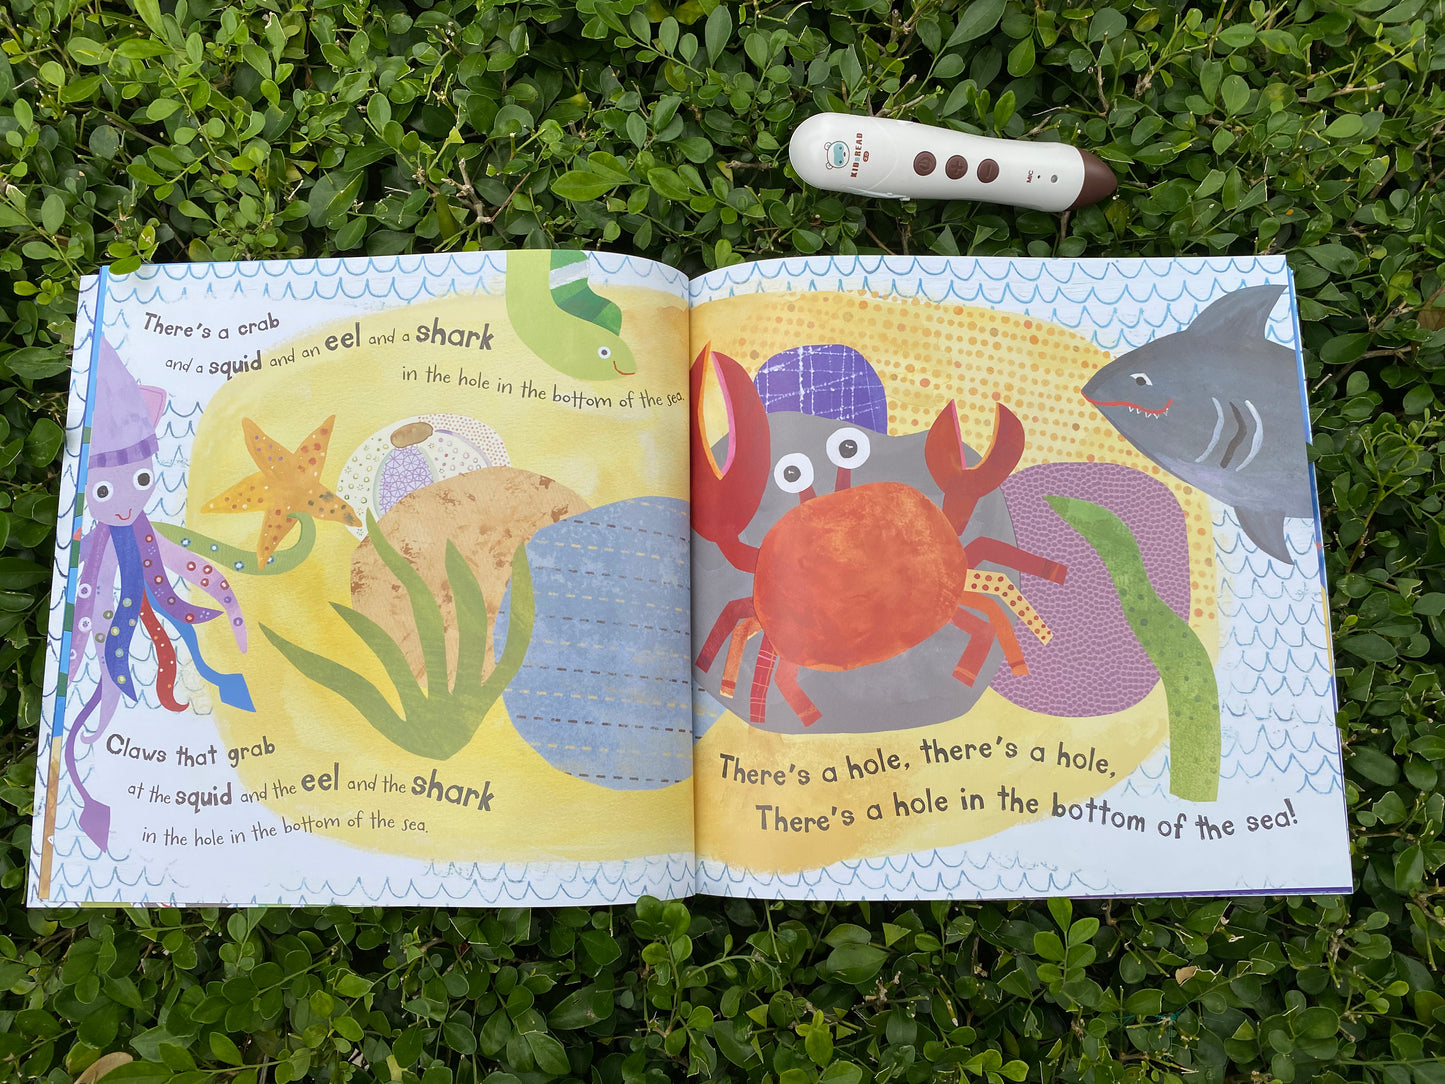 KIDSREAD
MIC
There's a crab
and a squid and an eel and a shark
in the hole in the bottom of the sea.
Claws that grab
at the squid and the eel and the shark
in the hole in the bottom of the sea.
There's a hole, there's a hole,
There's a hole in the bottom of the sea!